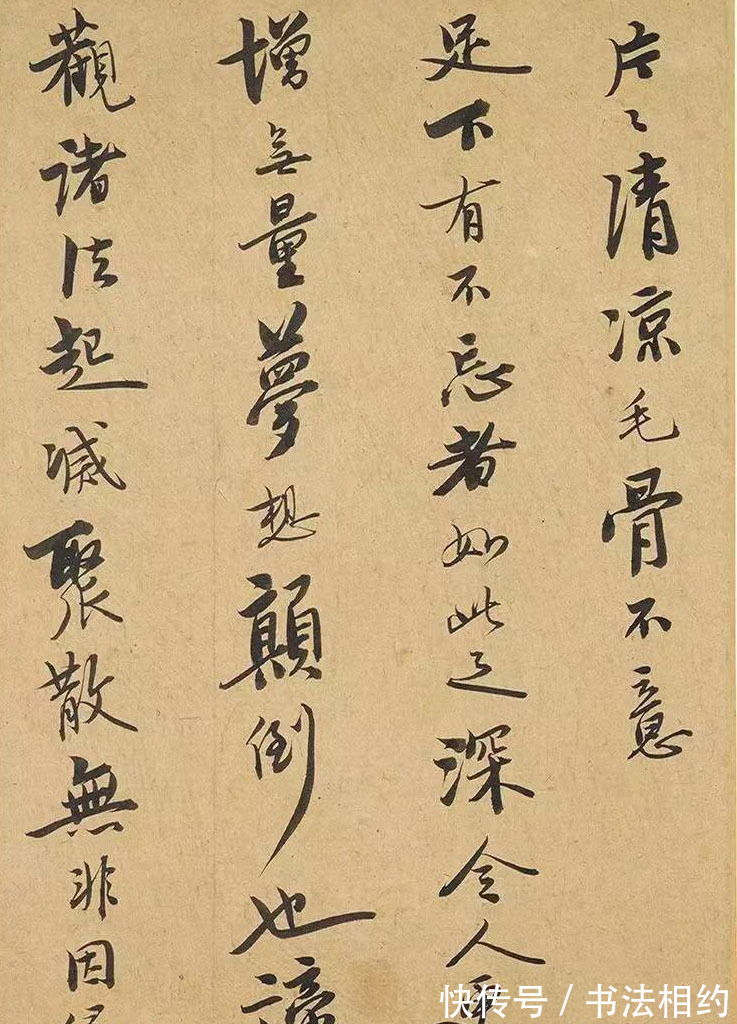 片々清凉毛骨不意
足下有不忘者如此之深令人
增無量夢想顛倒也諦
觀諸法起滅聚散無非因
快传号 / 书法相约